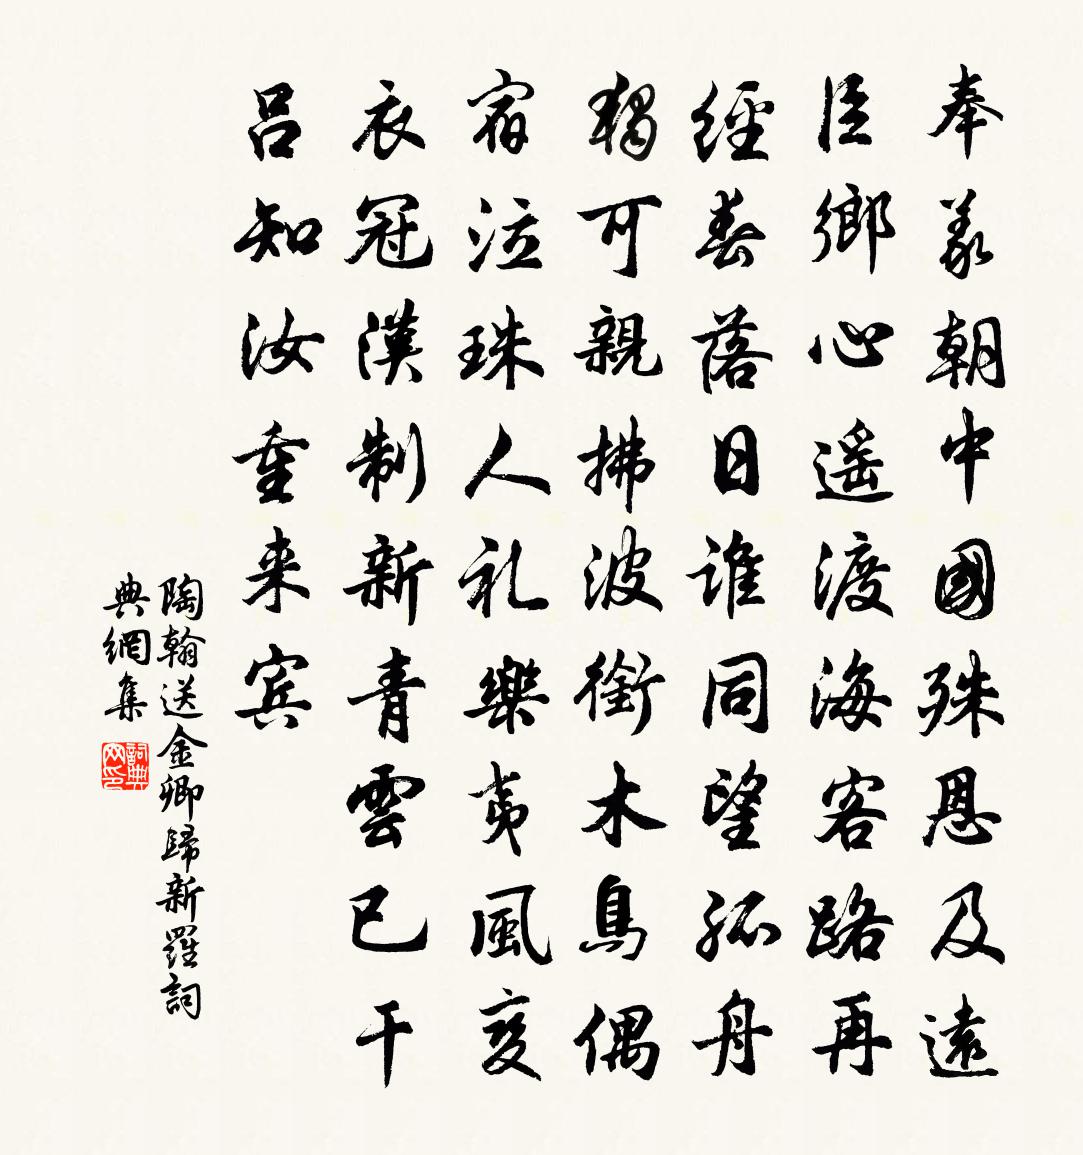 奉義朝中國殊恩及遠
臣鄉心遙渡海客路再
經春落日誰同望孤舟
獨可親拂波銜木鳥偶
宿泣珠人礼樂夷風變
衣冠漢制新青雲已干
呂知汝重来宾
陶翰送金卿歸新羅詞
典網集
詞典网印